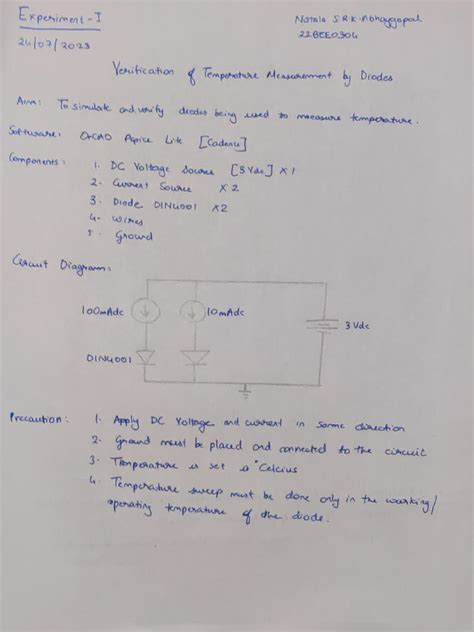 Experiment - I
24/07/2023
Natala S.R.K. Abhaygopal
22BEE0304
Verification of Temperature Measurement by Diodes
Aim: To simulate and verify diodes being used to measure temperature.
Software: OrCAD Pspice Lite [Cadence]
Components: 1. DC Voltage Source [3Vdc] x 1
2. Current Source x 2
3. Diode D1N4001 x2
4. Wires
5. Ground
Circuit Diagram:
100mAdc 10mAdc
3 Vdc
D1N4001
Precaution: 1. Apply DC Voltage and current in same direction
2. Ground must be placed and connected to the circuit
3. Temperature is set in °Celcius
4. Temperature sweep must be done only in the working/
operating temperature of the diode.